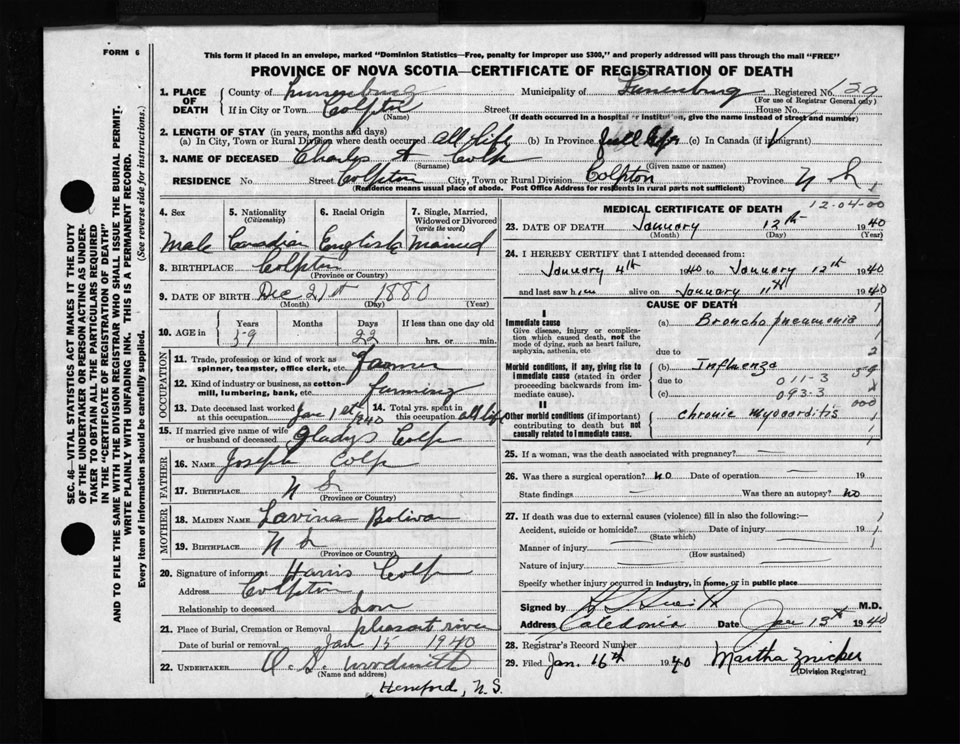 FORM 6
This form if placed in an envelope, marked "Dominion Statistics—Free, penalty for improper use $300," and properly addressed will pass through the mail "FREE"
PROVINCE OF NOVA SCOTIA—CERTIFICATE OF REGISTRATION OF DEATH
1. PLACE OF DEATH County of Lunenburg Municipality of Lunenburg Registered No. 129
(For use of Registrar General only)
If in City or Town Colpton Street House No.
(Name) (If death occurred in a hospital or institution, give the name instead of street and number)
2. LENGTH OF STAY (in years, months and days)
(a) In City, Town or Rural Division where death occurred all life (b) In Province (c) In Canada (if immigrant)
3. NAME OF DECEASED Charles A Colp
(Surname) (Given name or names)
RESIDENCE No. Street Colpton City, Town or Rural Division Colpton Province N S
(Residence means usual place of abode. Post Office Address for residents in rural parts not sufficient)
4. Sex 5. Nationality (Citizenship) 6. Racial Origin 7. Single, Married, Widowed or Divorced (write the word)
Male Canadian English Married
8. BIRTHPLACE Colpton
(Province or Country)
9. DATE OF BIRTH Dec 21st 1880
(Month) (Day) (Year)
10. AGE in Years Months Days If less than one day old
59 22 hrs. or min.
OCCUPATION
11. Trade, profession or kind of work as spinner, teamster, office clerk, etc. Farmer
12. Kind of industry or business, as cotton-mill, lumbering, bank, etc. farming
13. Date deceased last worked at this occupation Jan 1st 1940 14. Total yrs. spent in this occupation all life
15. If married give name of wife or husband of deceased Gladys Colp
FATHER
16. NAME Joseph Colp
17. BIRTHPLACE N S
(Province or Country)
MOTHER
18. MAIDEN NAME Lavina Bolivar
19. BIRTHPLACE N S
(Province or Country)
20. Signature of informant Harris Colp
Address Colpton
Relationship to deceased Son
21. Place of Burial, Cremation or Removal Pleasant river
Date of burial or removal Jan 15 1940
22. UNDERTAKER
(Name and address)
N.S.
MEDICAL CERTIFICATE OF DEATH
12-04-00
23. DATE OF DEATH January 12th 1940
(Month) (Day) (Year)
24. I HEREBY CERTIFY that I attended deceased from:
January 4th 1940 to January 12th 1940
and last saw him alive on January 11th 1940
CAUSE OF DEATH
I
Immediate cause
Give disease, injury or complication which caused death, not the mode of dying, such as heart failure, asphyxia, asthenia, etc
(a) Broncho pneumonia
due to
Morbid conditions, if any, giving rise to immediate cause (stated in order proceeding backwards from immediate cause).
(b) Influenza
due to 011-3
(c) 093-3
II
Other morbid conditions (if important) contributing to death but not causally related to immediate cause.
chronic myocarditis
25. If a woman, was the death associated with pregnancy?
26. Was there a surgical operation? no Date of operation 19
State findings Was there an autopsy? no
27. If death was due to external causes (violence) fill in also the following:—
Accident, suicide or homicide? Date of injury 19
(State which)
Manner of injury
(How sustained)
Nature of injury
Specify whether injury occurred in industry, in home, or in public place
Signed by M.D.
Address Caledonia Date Jan 13th 1940
28. Registrar's Record Number
29. Filed Jan. 16th 1940 Martha Zwicker
(Division Registrar)
SEC. 46—VITAL STATISTICS ACT MAKES IT THE DUTY
OF THE UNDERTAKER OR PERSON ACTING AS UNDER-
TAKER TO OBTAIN ALL THE PARTICULARS REQUIRED
IN THE "CERTIFICATE OF REGISTRATION OF DEATH"
AND TO FILE THE SAME WITH THE DIVISION REGISTRAR WHO SHALL ISSUE THE BURIAL PERMIT.
WRITE PLAINLY WITH UNFADING INK. THIS IS A PERMANENT RECORD.
Every item of information should be carefully supplied. (See reverse side for instructions.)